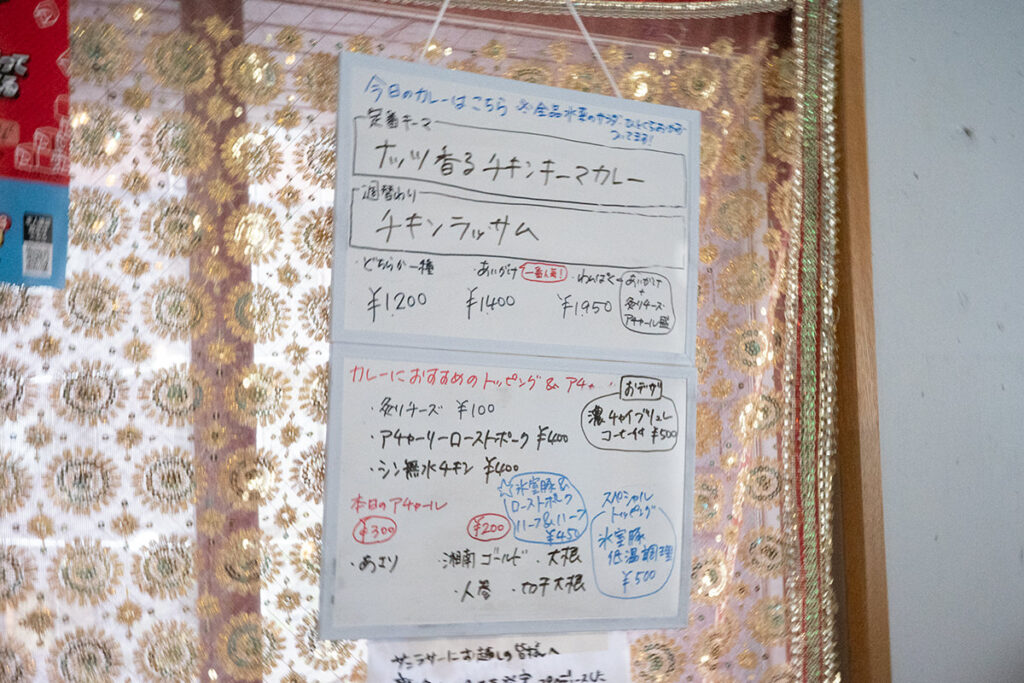 今日のカレーはこちら ※全品水菜のサラダ ひとくちおかず
ついてます!
定番キーマ
ナッツ香るチキンキーマカレー
週替わり
チキンラッサム
・どちらか一種
¥1200
・あいがけ 一番人気!
¥1400
・わんぱく
¥1950
あいがけ
+
炙りチーズ
アチャール盛
カレーにおすすめのトッピング&アチャ
・炙りチーズ ¥100
・アチャーリーローストポーク ¥400
・シン無水チキン ¥400
おデザ
濃チャイブリュレ
コーヒー付 ¥500
☆氷室豚&
ローストポーク
ハーフ&ハーフ
¥450
スペシャル
トッピング
氷室豚
低温調理
¥500
本日のアチャール
¥300
¥200
・湘南ゴールド ・大根
・人参 ・切干大根
サンラサーにお越しの皆様へ